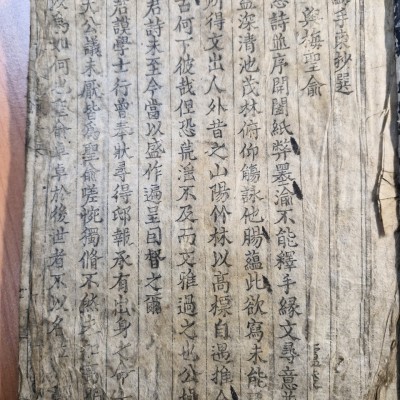 手柬抄選
與梅聖俞
惠詩並序開闔紙弊墨渝不能釋手緣文尋意益
深清池茂林俯仰觴詠他腸蘊此欲寫未能
所得文出人外昔之山陽竹林以高標自遇推今
古何下彼哉但恐荒淫不及而文雅過之也公操
君詩未至今當以盛作遍呈自督之爾
學士行曾奉狀尋得邸報承有出身
大公議未厭皆爲聖俞嗟惋獨脩不然
爲如何 卓於後世者不以名